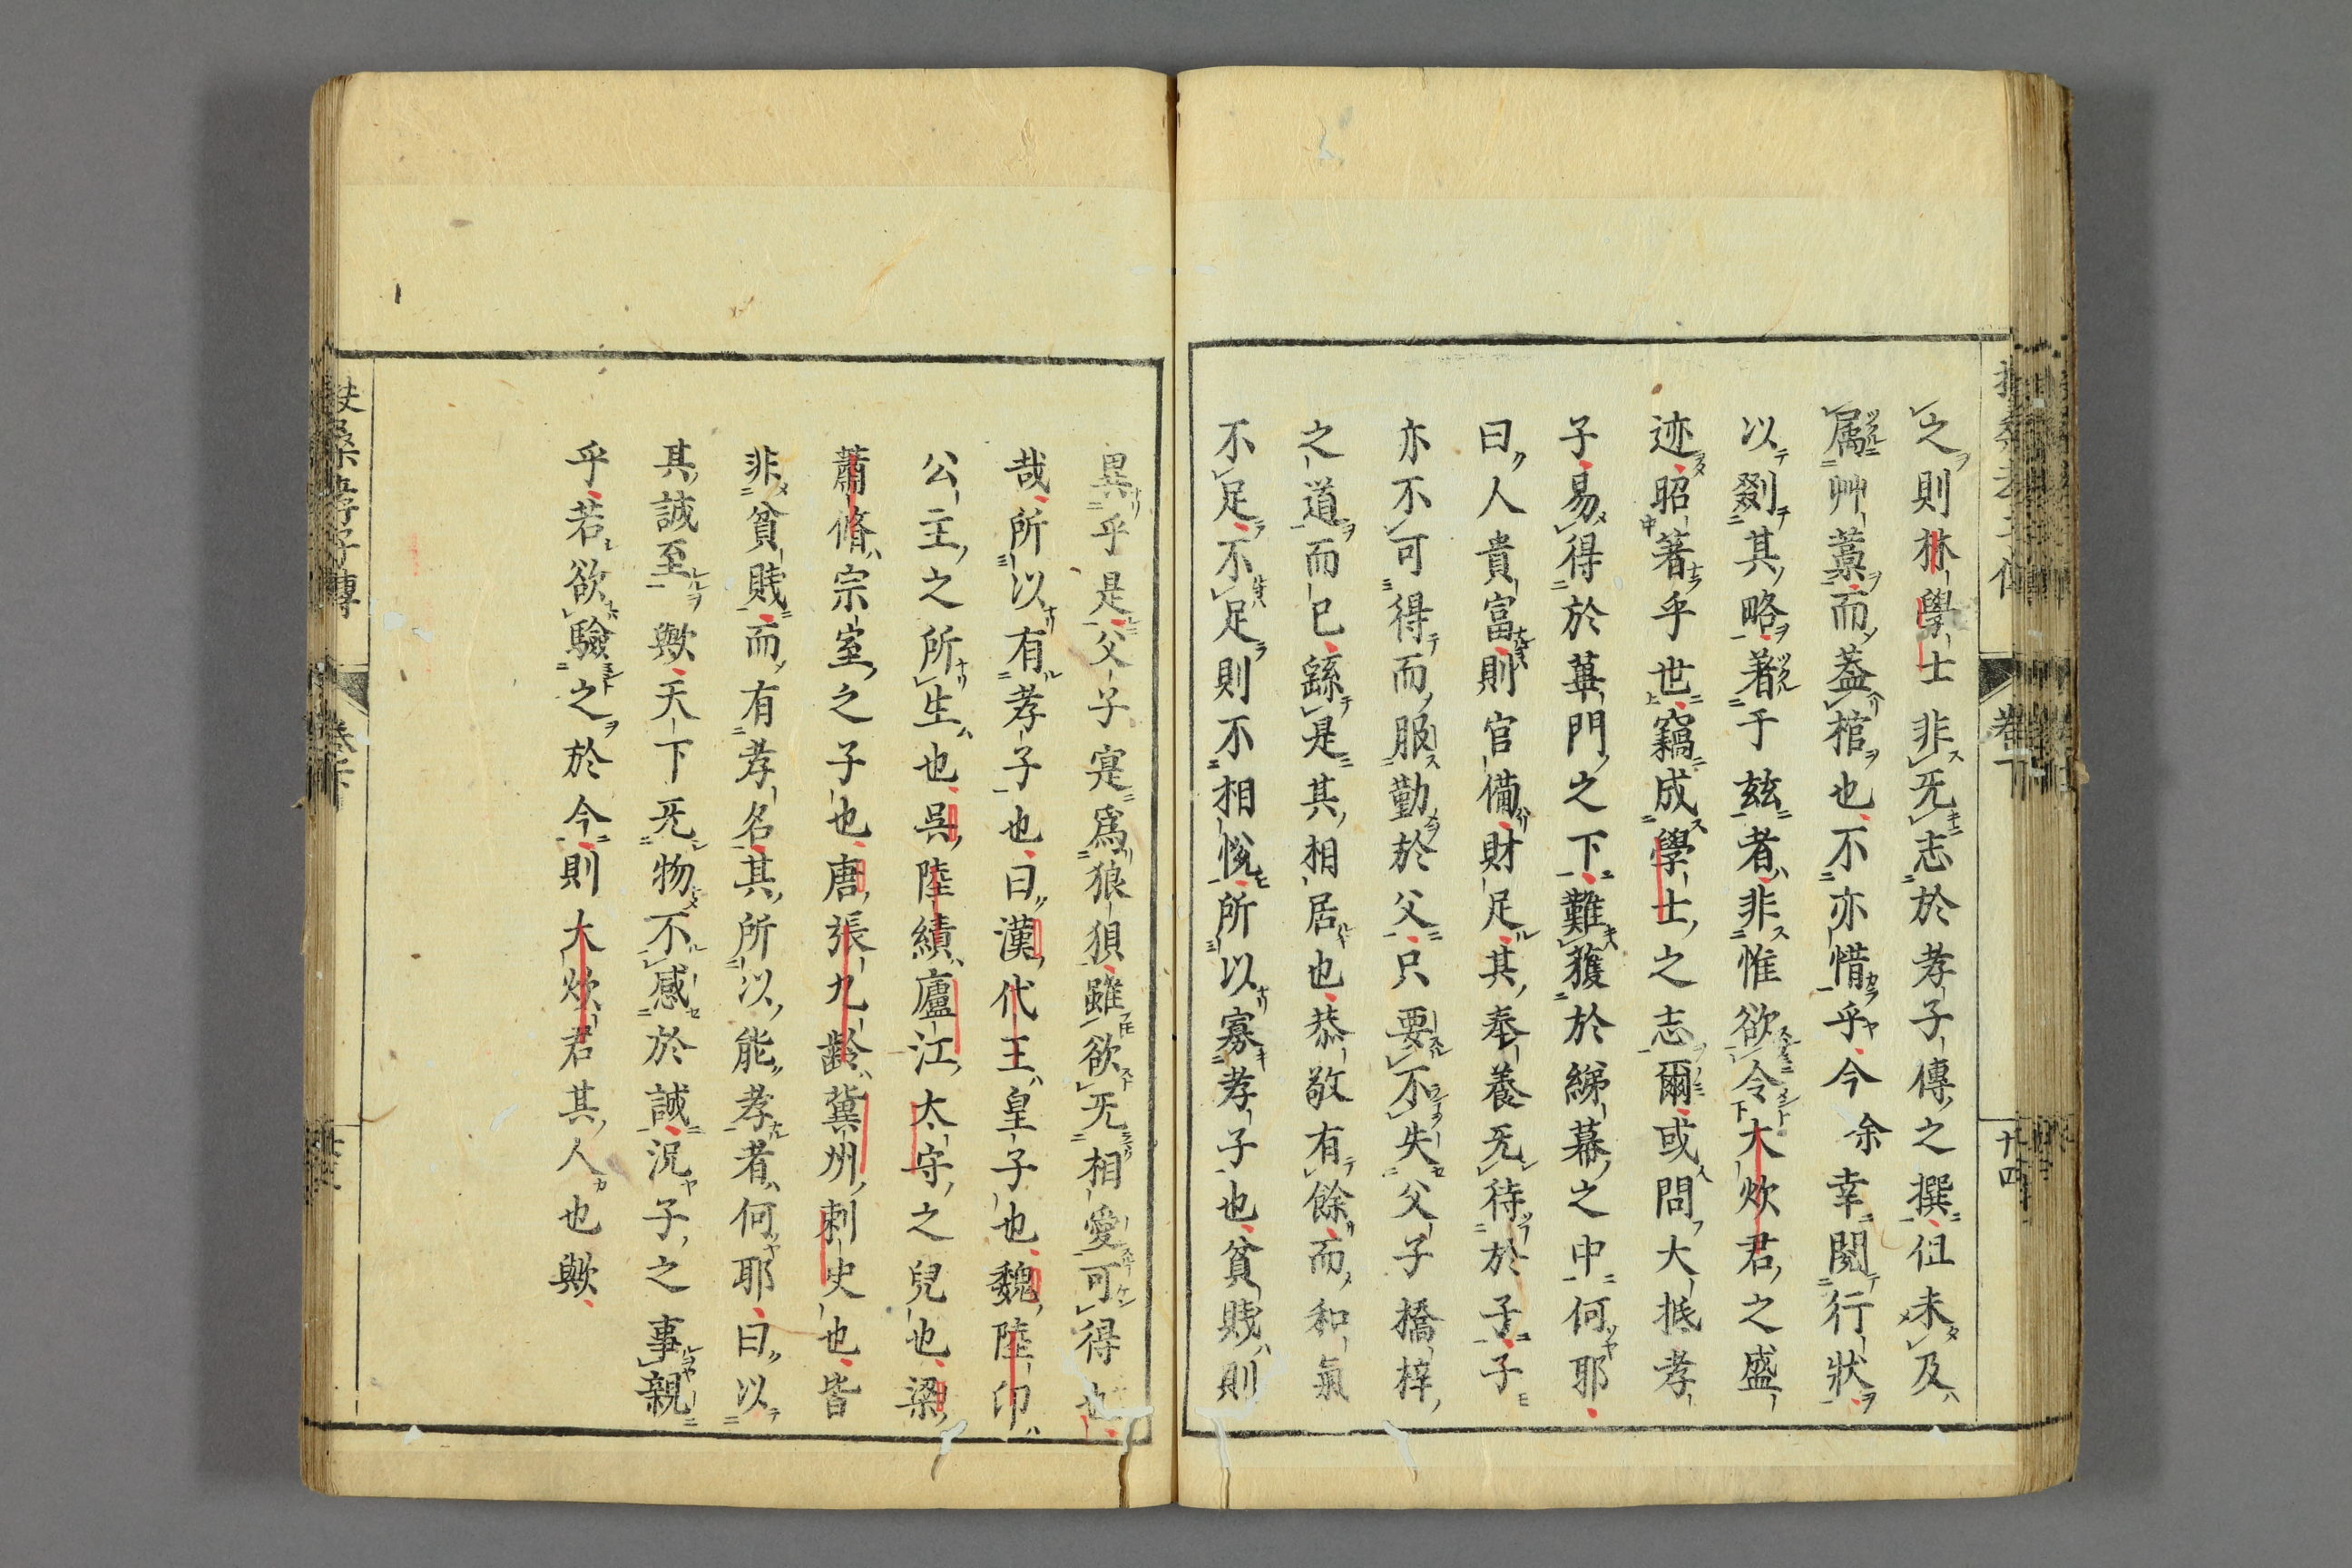 之則林學士非无志於孝子傳之撰但未及
属艸藁而蓋棺也不亦惜乎今余幸閲行狀
以剟其略著于茲者非惟欲令大炊君之盛
迹昭著乎世竊成學士之志爾或問大抵孝
子易得於蓽門之下難獲於綈幕之中何耶
曰人貴富則官備財足其奉養无待於子子
亦不可得而服勤於父只要不失父子橋梓
之道而已繇是其相居也恭敬有餘而和氣
不足不足則不相悅所以寡孝子也貧賎則
異乎是父子寔爲狼狽雖欲无相愛可得也
哉所以有孝子也曰漢代王皇子也魏陸卬
公主之所生也呉陸績廬江太守之兒也梁
蕭脩宗室之子也唐張九齡冀州刺史也皆
非貧賎而有孝名其所以能孝者何耶曰以
其誠至歟天下无物不感於誠況子之事親
乎若欲驗之於今則大炊君其人也歟
卷下
廿四